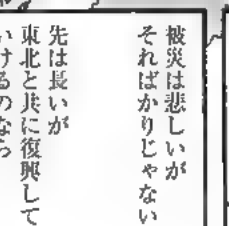 被災は悲しいが
そればかりじゃない
先は長いが
東北と共に復興して
いけるのなら